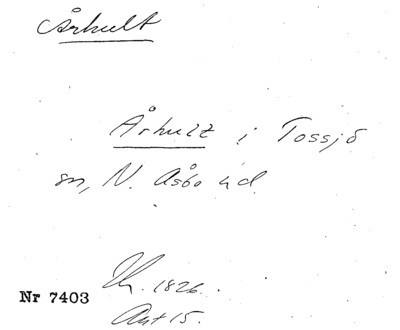 Århult
Århult i Tossjö
sn, N. Åsbo hd.
1826.
Nr 7403
Avt 15.